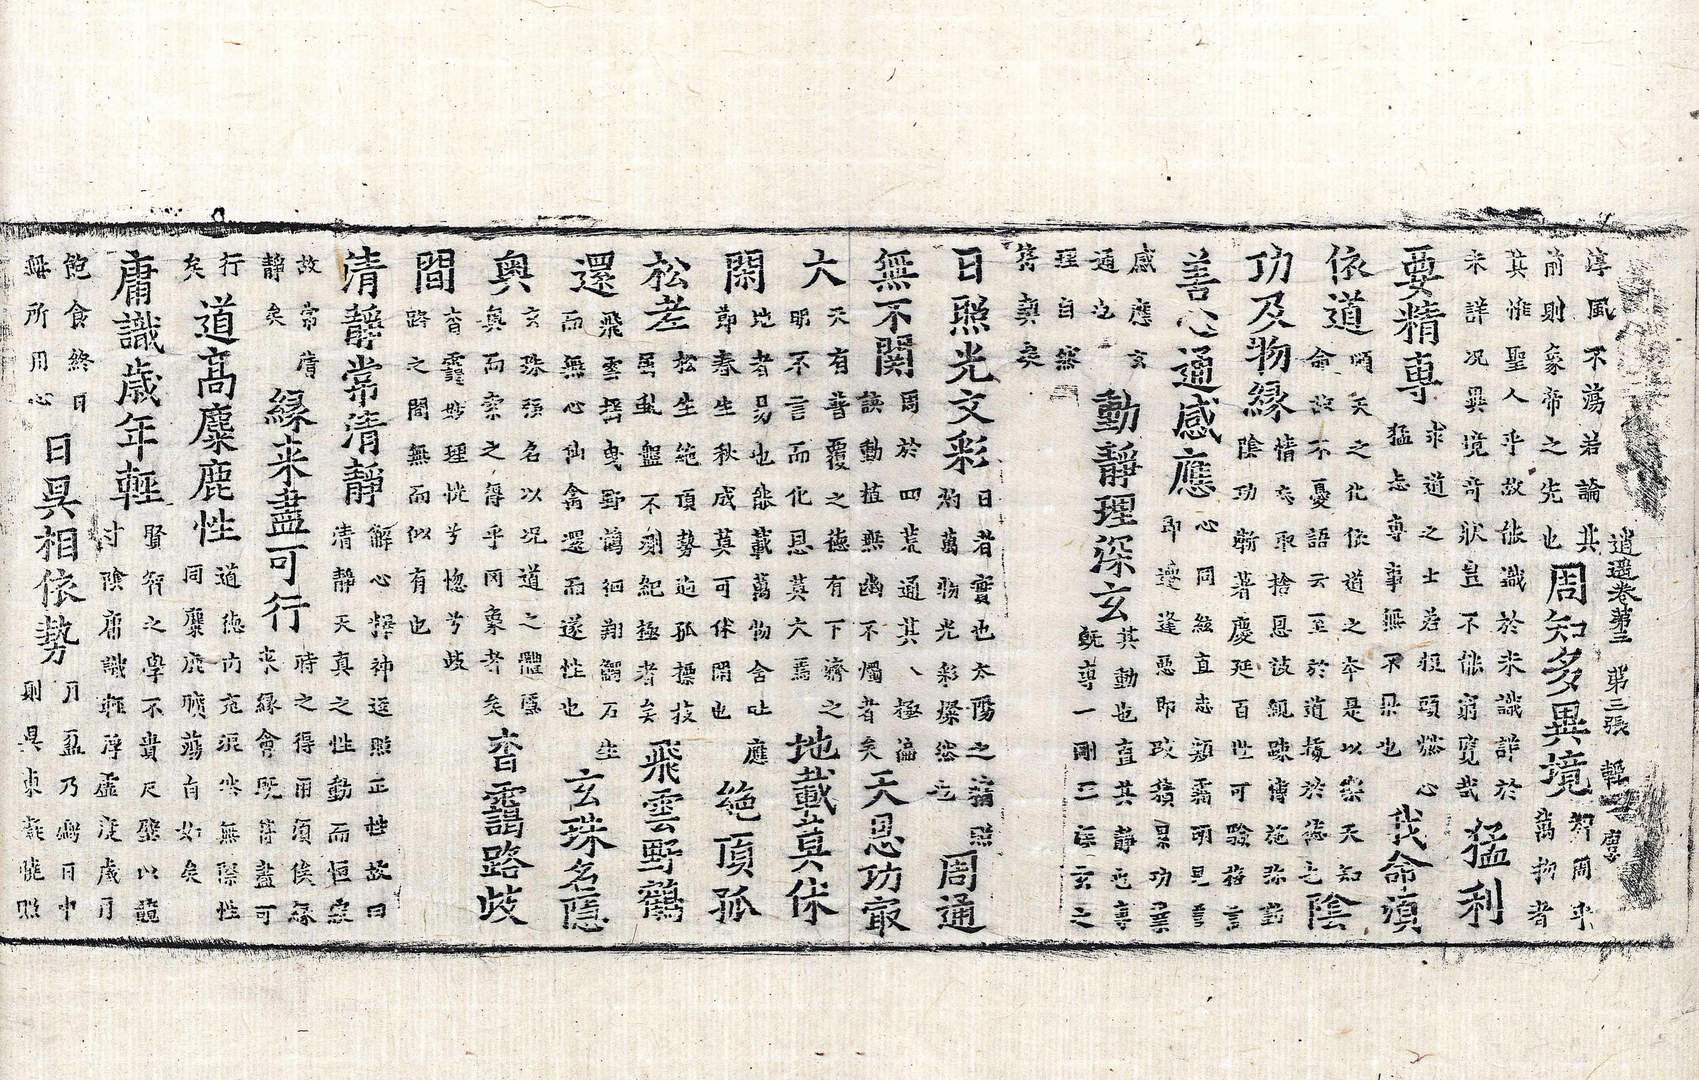 逍遥卷第三 第三張 輕
淳風不蕩若論其
前則象帝之先也
周知多異境
智周乎
萬物者
其惟聖人乎故能識於未識詳於
未詳况異境奇狀豈不能窮覽哉
猛利
要精專
求道之士若救頭燃心
猛志專事無不果也
我命湏
依道
順天之化依道之本是以樂天知
命故不憂語云至於道據於德也
陰
功及物緣
情六取捨恩該親踈博施弥勤
陰功斬著慶延百世可驗格言
善心通感應
心同絃直志類霜明見善
即遷逢惡即改積累功業
感應玄
通也
理自然
舊契矣
動靜理深玄
其動也直其靜也專
既導一剛二深玄之
日照光文彩
日者實也太陽之精照
灼萬物光彩燦然也
周通
無不闋
周於四荒通其八極淪
該動植無幽不燭者矣
天恩功㝡
大
天有普覆之德有下濟之
明不言而化恩莫大焉
地載旹其休
閑
地者易也能載萬物含吐應
節春生秋成莫可休閑也
絶頂孤
松老
松生絶頂勢迥孤摽枝
蜃虬盤不測紀極者矣
飛雲野鶴
還
飛雲揺曳野鶴徊翔觸石生
而無心仙禽還而遂性也
玄珠名隱
奥
玄珠强名以况道之體隱
真而索之得乎罔象者矣
杳靄路歧
間
杳靄妙理恍兮惚兮歧
路之間無而似有也
清靜常清靜
解心釋神逕照正性故曰
清靜天真之性動而恒寂
故常清
靜矣
緣来盡可行
時之得用須俟緣
来緣會既得盡可
行
矣
道高麋鹿性
道德内充混然無際性
同麋鹿曠蕩自如矣
庸識歳年輕
賢智之學不貴尺璧以競
寸陰庸識輕浮虚淀歲月
飽食終日
無所用心
日㫷相依勢
月盈乃虧日中
則㫷東𣋁曉照